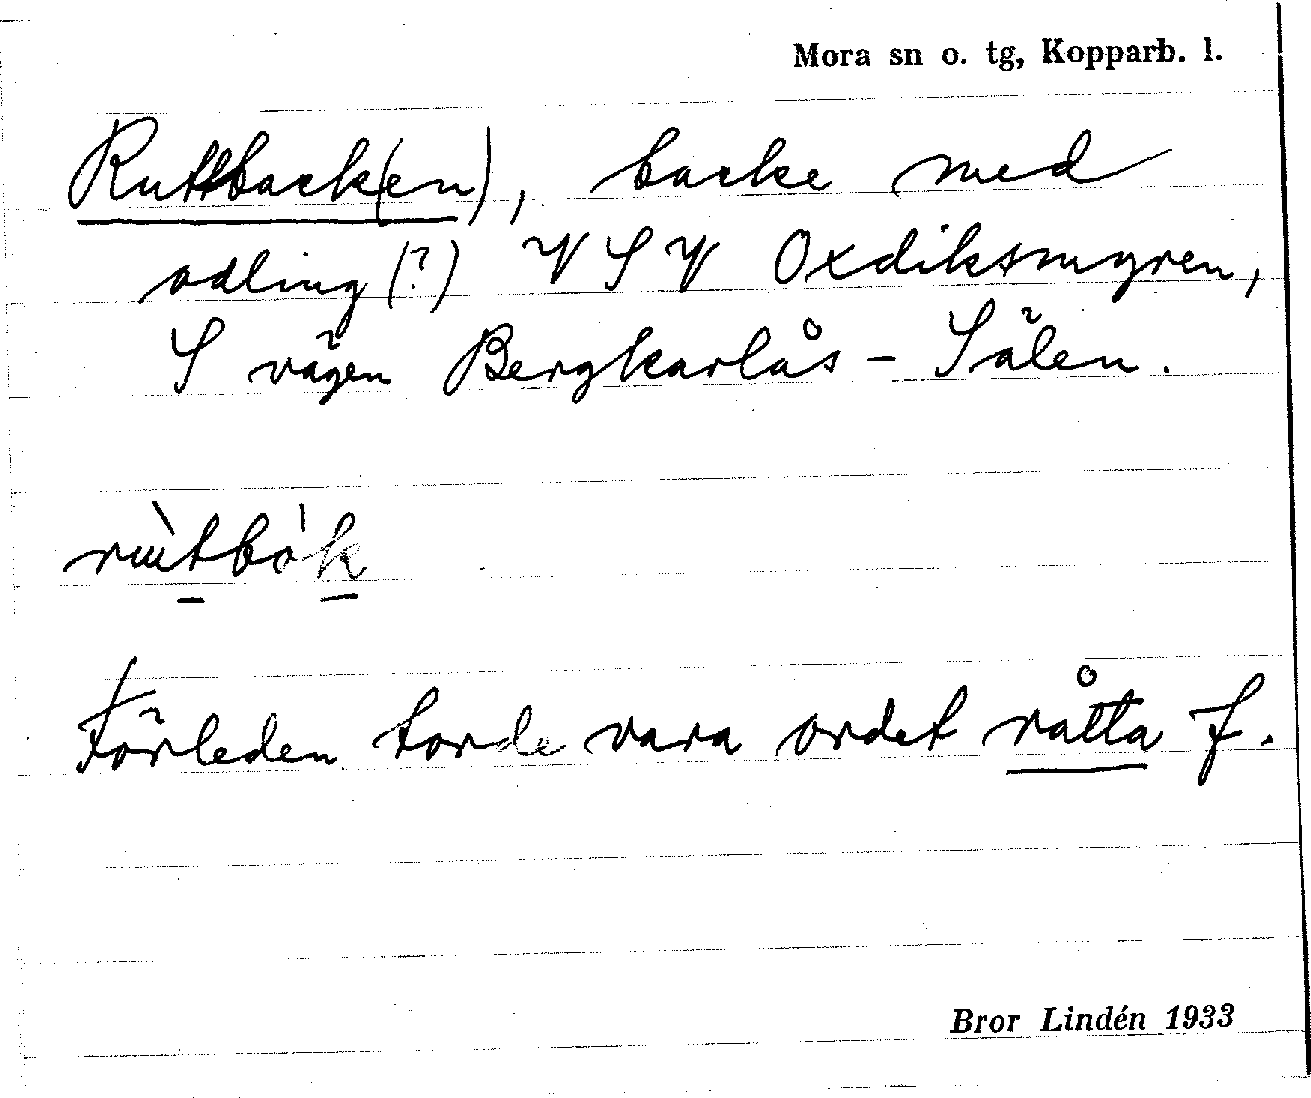 Mora sn o. tg, Kopparb. l.
Ruttback(en), backe med
odling (?) VSV Oxdiksmyren,
S vägen Bergkarlås – Sälen.
rɯ̀tbók
Förleden torde vara ordet råtta f.
Bror Lindén 1933